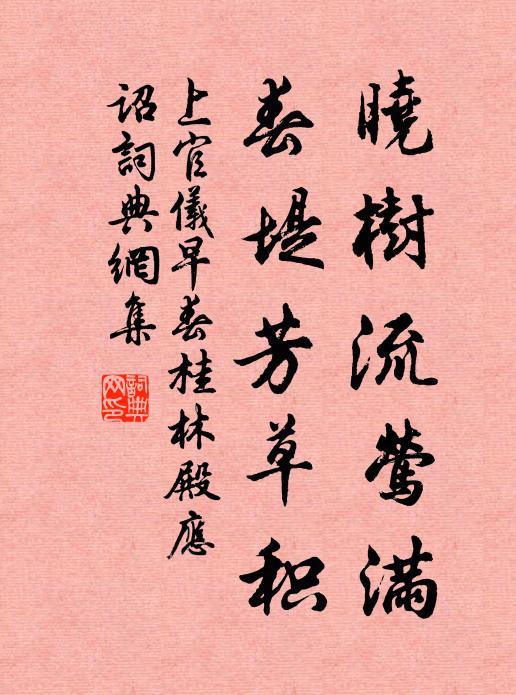 曉樹流鶯滿
春堤芳草积
上官儀早春桂林殿應
詔詞典網集
詞典
网印